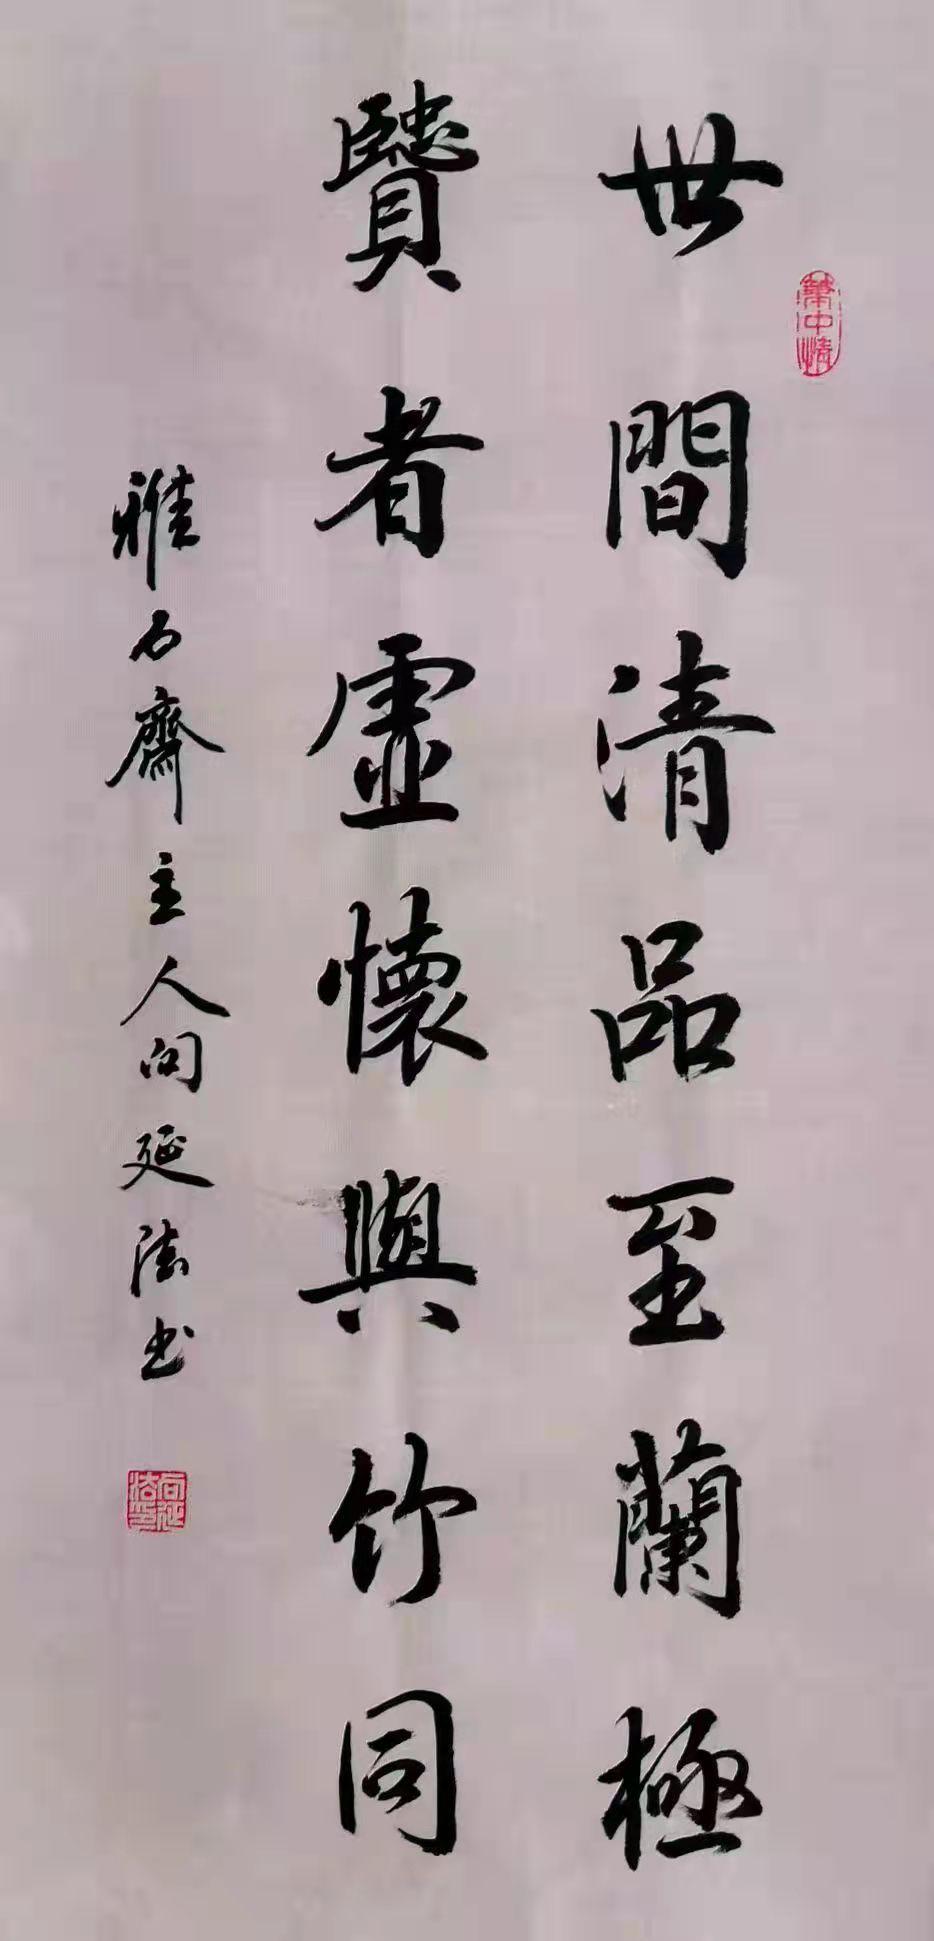 世間清品至蘭極
賢者虛懷與竹同
雅石齋主人向延法書